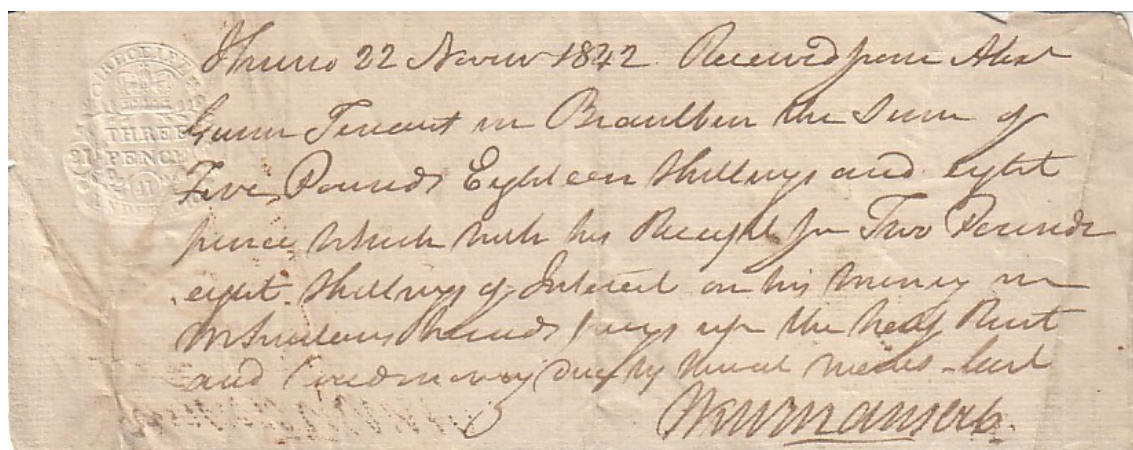 RECEIPT
THREE
PENCE
Thurso 22 Novr 1842 Received from Alexr
Gunn Tenant in Braulbin the Sum of
Five Pounds Eighteen Shillings and eight
pence which with his Receipt for Two Pounds
eight Shillings of Interest on his money in
Mr hands pays up the half Rent
and money due by him at last